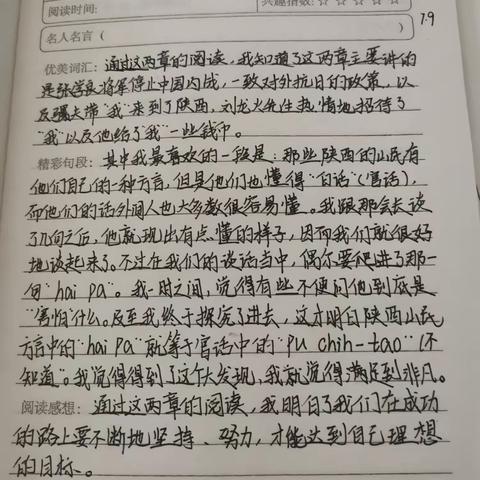 阅读时间： 兴趣指数：☆ ☆ ☆ ☆ ☆
7.9
名人名言（ ）
优美词汇：通过这两章的阅读，我知道了这两章主要讲的
是张学良将军停止中国内战，一致对外抗日的政策，以
及骡夫带“我”来到了陕西，刘龙火先生热情地招待了
“我”以及他给了“我”一些钱币。
精彩句段：其中我最喜欢的一段是：那些陕西的山民有
他们自己的一种方言，但是他们也懂得“白话”（官话），
而他们的话外间人也大多数很容易懂。我跟那会长谈
了几句之后，他就现出有点懂的样子，因而我们就很好
地谈起来了。不过在我们的谈话当中，偶尔要爬进了那一
句“hai pa”。我一时之间，觉得有些不便问他到底是
“害怕”什么。及至我终于探究了进去，这才明白陕西山民
方言中的“hai pa”就等于官话中的“pu chih-tao”（不
知道”。我觉得得到了这个大发现，我就觉得满足到非凡。
阅读感想：通过这两章的阅读，我明白了我们在成功
的路上要不断地坚持、努力，才能达到自己理想
的目标。